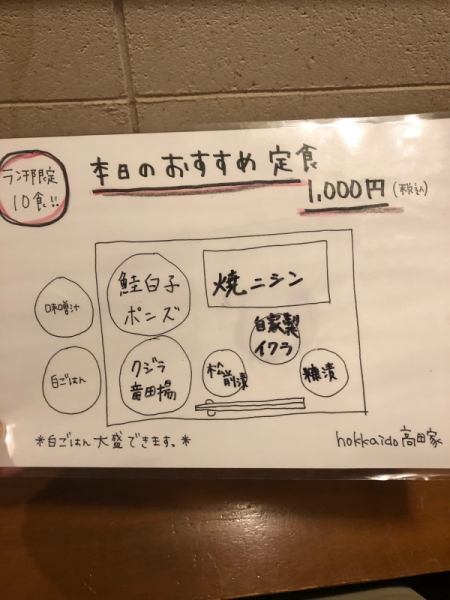 本日のおすすめ定食
ランチ限定
10食!!
1,000円(税込)
鮭白子
ポンズ
焼ニシン
味噌汁
自家製
イクラ
白ごはん
クジラ
竜田揚
松前漬
糠漬
*白ごはん大盛できます。*
hokkaido高田家